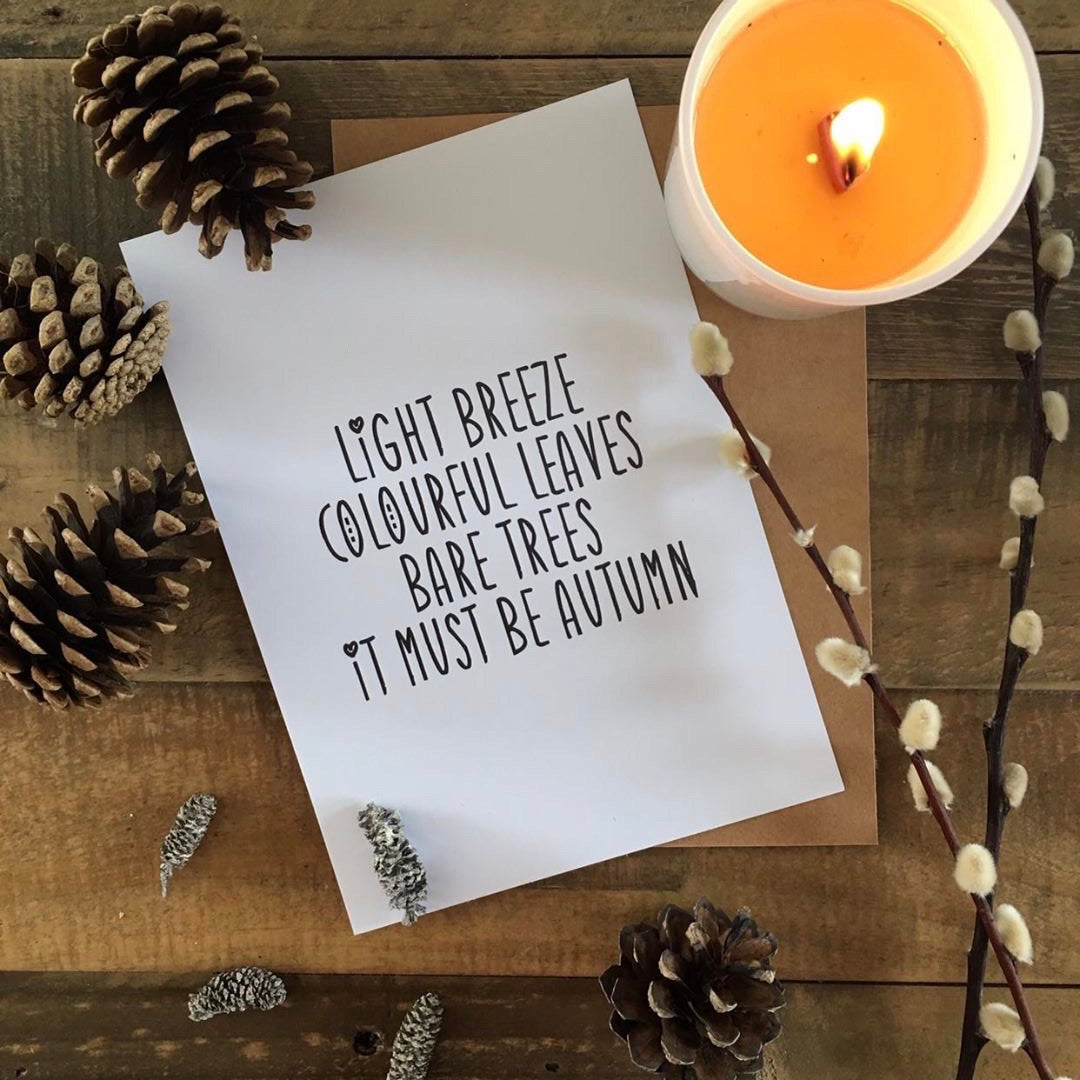 LiGHT BREEZE
COLOURFUL LEAVES
BARE TREES
iT MUST BE AUTUMN